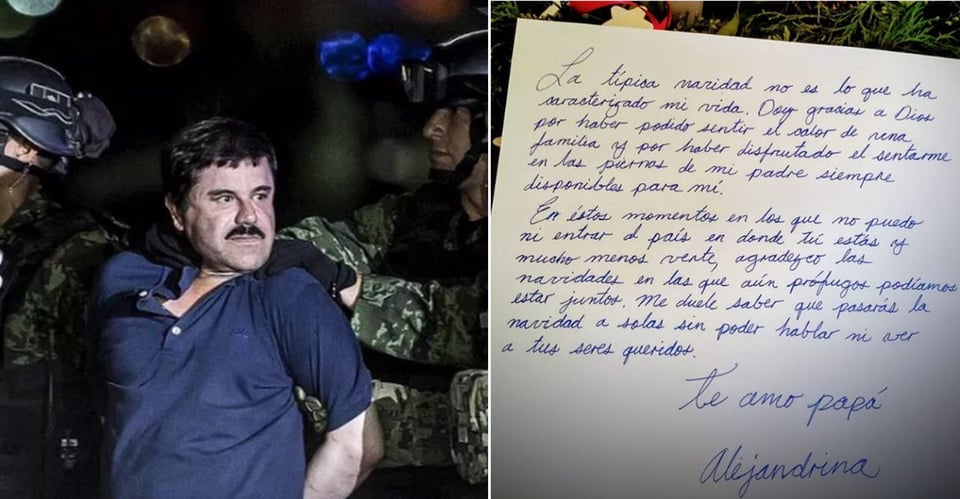 La típica navidad no es lo que ha
caracterizado mi vida. Doy gracias a Dios
por haber podido sentir el calor de una
familia y por haber disfrutado el sentarme
en las piernas de mi padre siempre
disponibles para mí.
En éstos momentos en los que no puedo
ni entrar al país en donde tú estás y
mucho menos verte, agradezco las
navidades en las que aún prófugos podíamos
estar juntos. Me duele saber que pasarás la
navidad a solas sin poder hablar ni ver
a tus seres queridos.
Te amo papá
Alejandrina